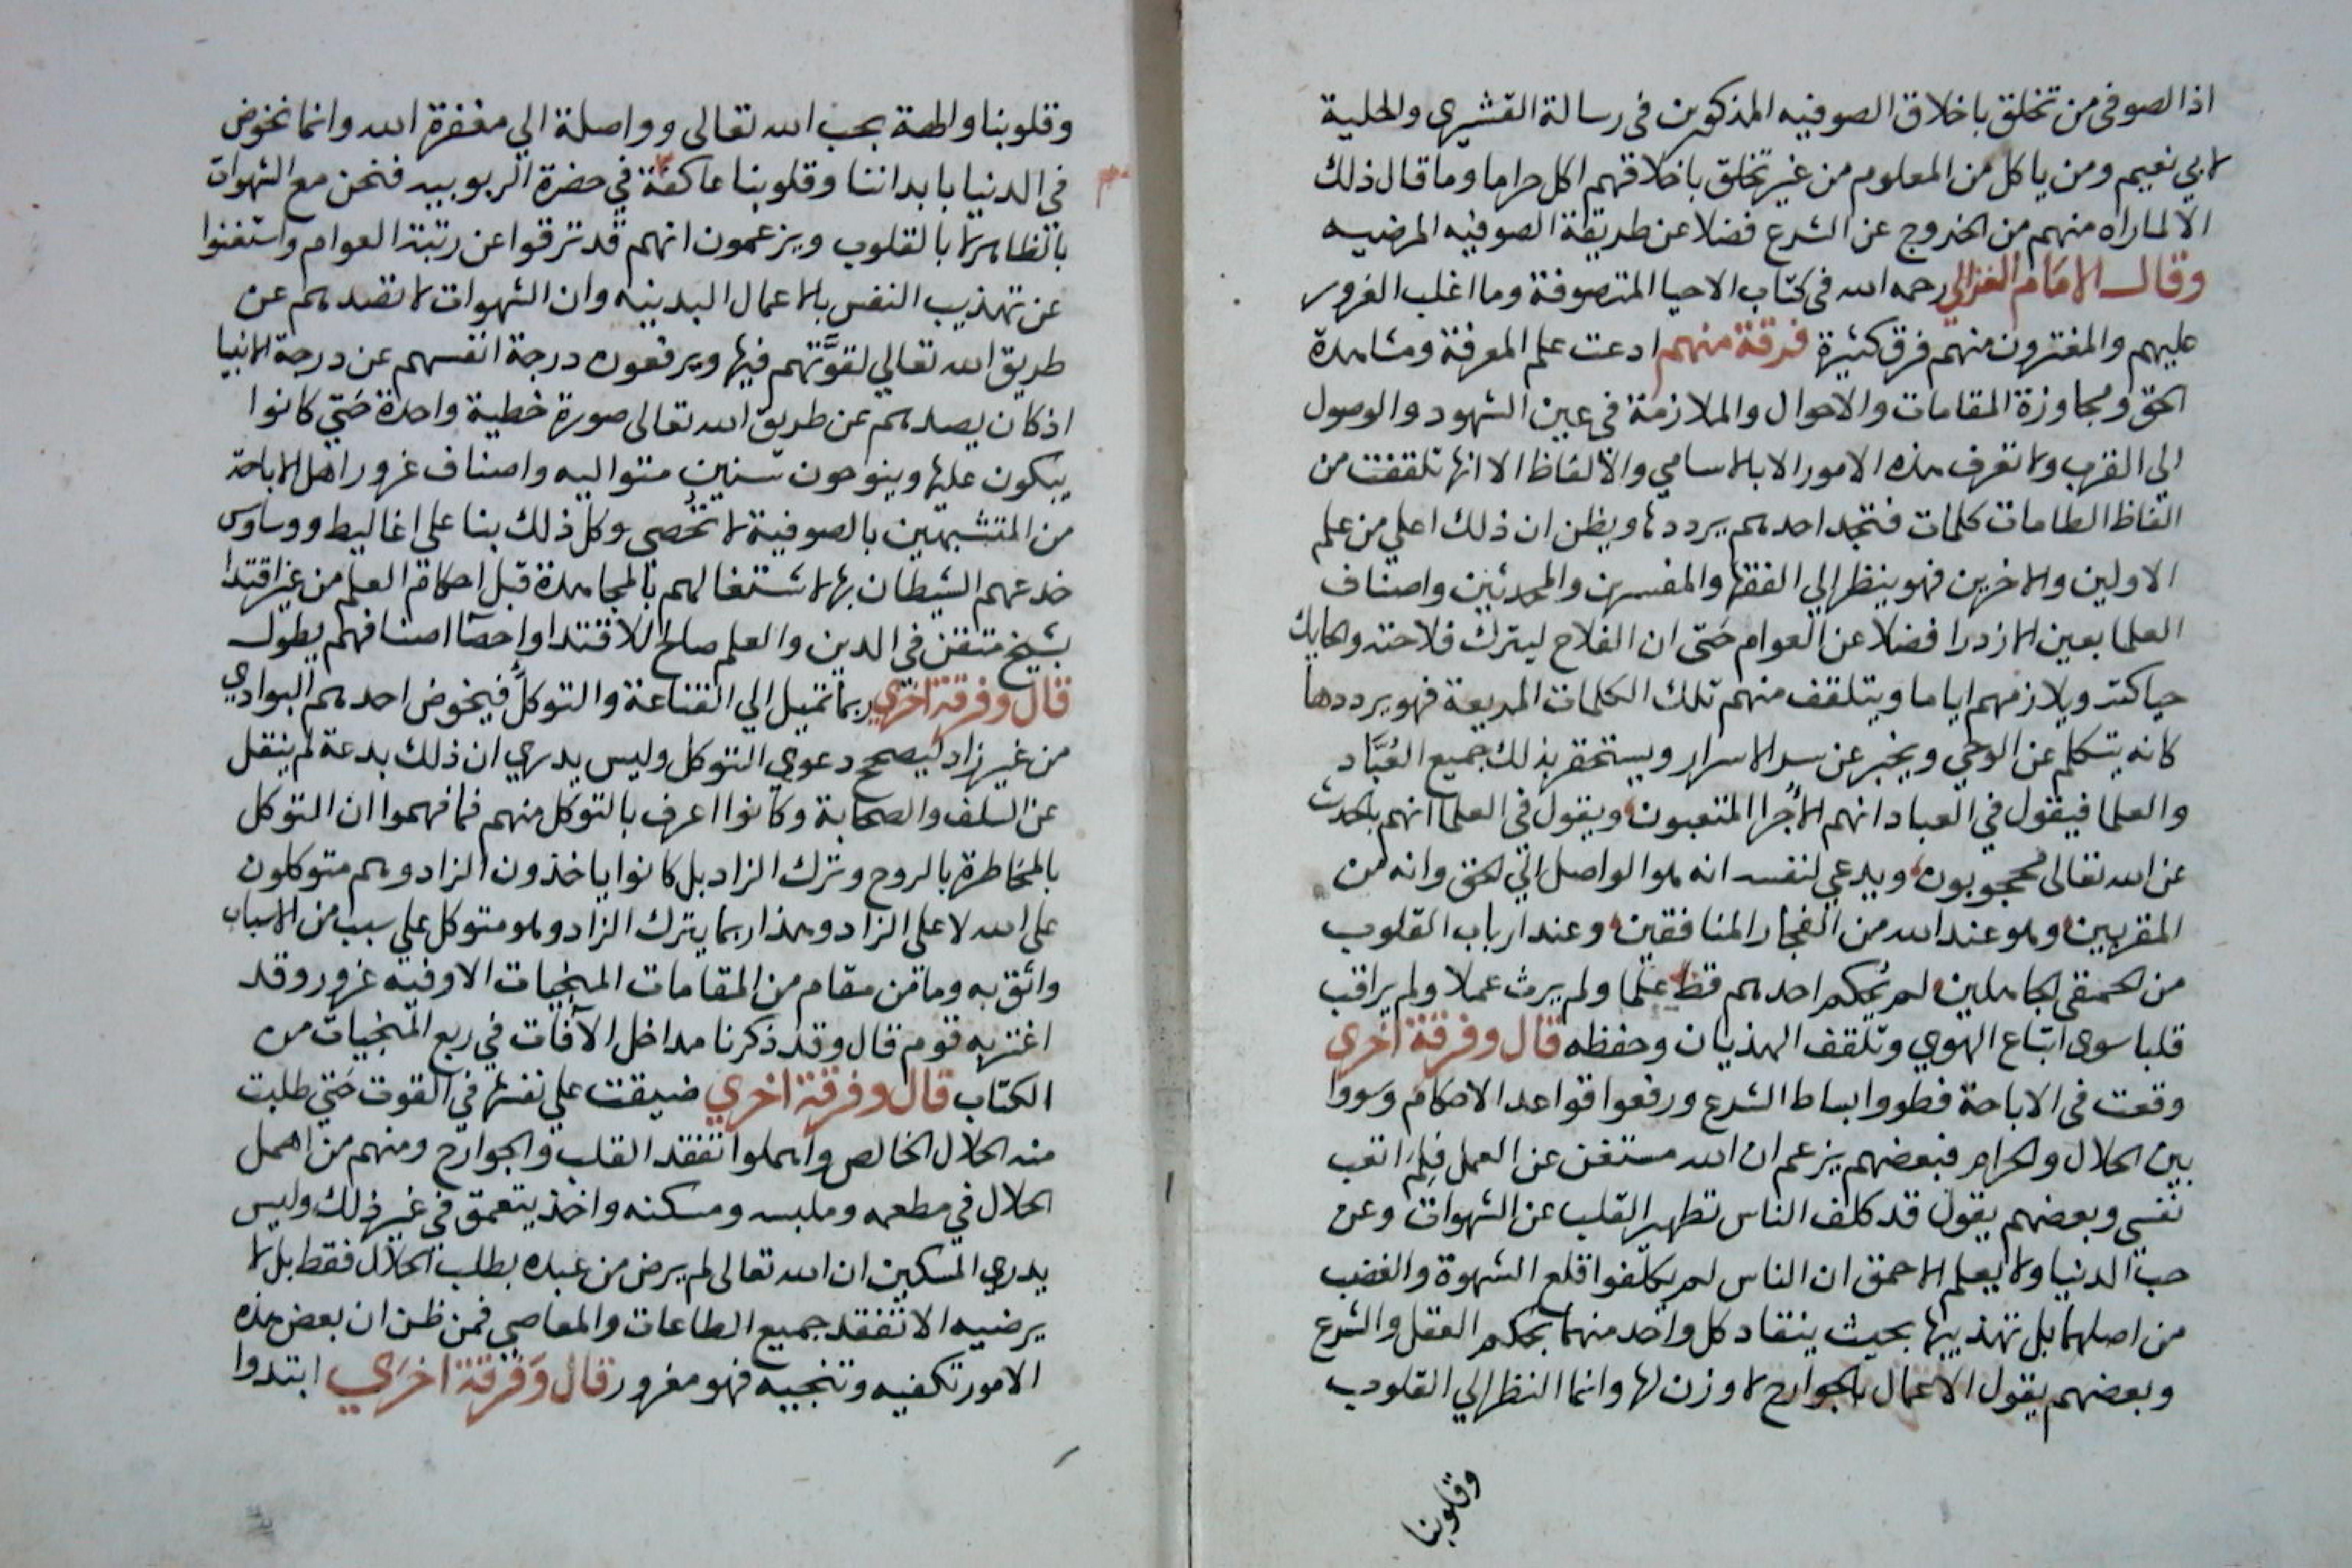 اذ الصوفى من تخلق باخلاق الصوفيه المذكورين فى رسالة القشيرى والحلية
لابي نعيم ومن ياكل من المعلوم من غير تخلق باخلاقهم اكل حراما وما قال ذلك
الا لما راه منهم من الخروج عن الشرع فضلا عن طريقة الصوفيه المرضيه
وقال الامام الغزالى رحمه الله فى كتاب الاحيا المتصوفة وما اغلب الغرور
عليهم والمغترون منهم فرق كثيرة فرقة منهم ادعت علم المعرفة ومشاهدة
الحق ومجاوزة المقامات والاحوال والملازمة في عين الشهود والوصول
الى القرب ولا تعرف هذه الامور الا بالاسامي والالفاظ الا انها تلقفت من
الفاظ الطامات كلمات فتجد احدهم يرددها ويظن ان ذلك اعلي من علم
الاولين والاخرين فهو ينظر الي الفقها والمفسرين والمحدثين واصناف
العلما بعين الازدرا فضلا عن العوام حتى ان الفلاح ليترك فلاحته والحايك
حياكته ويلازمهم اياما ويتلقف منهم تلك الكلمات المزيعة فهو يرددها
كانه يتكلم عن الوحي ويخبر عن سر الاسرار ويستحقر بذلك جميع العُبَّاد
والعلما فيقول في العباد انهم الأجرا المتعبون ويقول في العلما انهم بالحديث
عن الله تعالى محجوبون ويدعي لنفسه انه هو الواصل الي الحق وانه من
المقربين وهو عند الله من الفجار المنافقين وعند ارباب القلوب
من الحمقى الجاهلين لم يُحكم احدهم قط علما ولم يرث عملا ولم يراقب
قلبا سوى اتباع الهوي وتلقف الهذيان وحفظه قال وفرقة اخري
وقعت فى الاباحة فطووا بساط الشرع ورفعوا قواعد الاحكام وسووا
بين الحلال والحرام فبعضهم يزعم ان الله مستغن عن العمل فلِمَ اتعب
نفسي وبعضهم يقول قد كلف الناس تطهير القلب عن الشهوات وعن
حب الدنيا ولا يعلم الاحمق ان الناس لم يكلفوا قلع الشهوة والغضب
من اصلهما بل تهذيبها بحيث ينقاد كل واحد منهما بحكم العقل والشرع
وبعضهم يقول الاعمال بالجوارح لا وزن لها وانما النظر الي القلوب
وقلوبنا
وقلوبنا والهة بحب الله تعالى وواصلة الي مغفرة الله وانما نخوض
في الدنيا بابداننا وقلوبنا عاكفة في حضرة الربوبيه فنحن مع الشهوات
بالظاهر لا بالقلوب ويزعمون انهم قد ترقوا عن رتبة العوام واستغنوا
عن تهذيب النفس بالاعمال البدنيه وان الشهوات لا تصدهم عن
طريق الله تعالي لقوَّتهم فيها ويرفعون درجة انفسهم عن درجة الانبيا
اذ كان يصدهم عن طريق الله تعالى صورة خطية واحدة حتي كانوا
يبكون عليها وينوحون سنين متواليه واصناف غرور اهل الاباحة
من المتشبهين بالصوفية لا تحصى وكل ذلك بنا على اغاليط ووساوس
خدعهم الشيطان بها لاشتغالهم بالمجاهدة قبل احكام العلم من غير اقتدا
بشيخ متقن في الدين والعلم صالح للاقتدا واحصا اصنافهم يطول
قال وفرقة اخري ربما تميل الي القناعة والتوكل فيخوض احدهم البوادي
من غير زاد ليصحح دعوي التوكل وليس يدري ان ذلك بدعة لم ينقل
عن السلف والصحابة وكانوا اعرف بالتوكل منهم فما فهموا ان التوكل
بالمخاطرة بالروح وترك الزاد بل كانوا ياخذون الزاد وهم متوكلون
على الله لا على الزاد وهذا ربما يترك الزاد وهو متوكل علي سبب من الاسباب
واثق به وما من مقام من المقامات المنجيات الا وفيه غرور وقد
اغتر به قوم قال وقد ذكرنا مداخل الآفات في ربع المنجيات من
الكتاب قال وفرقة اخري ضيقت علي نفسها في القوت حتي طلبت
منه الحلال الخالص واهملوا تفقد القلب والجوارح ومنهم من اهمل
الحلال في مطعمه وملبسه ومسكنه واخذ يتعمق في غير ذلك وليس
يدري المسكين ان الله تعالى لم يرض من عبده بطلب الحلال فقط بل لا
يرضيه الا تفقد جميع الطاعات والمعاصي فمن ظن ان بعض هذه
الامور تكفيه وتنجيه فهو مغرور قال وَفرقة اخرَي ابتدوا